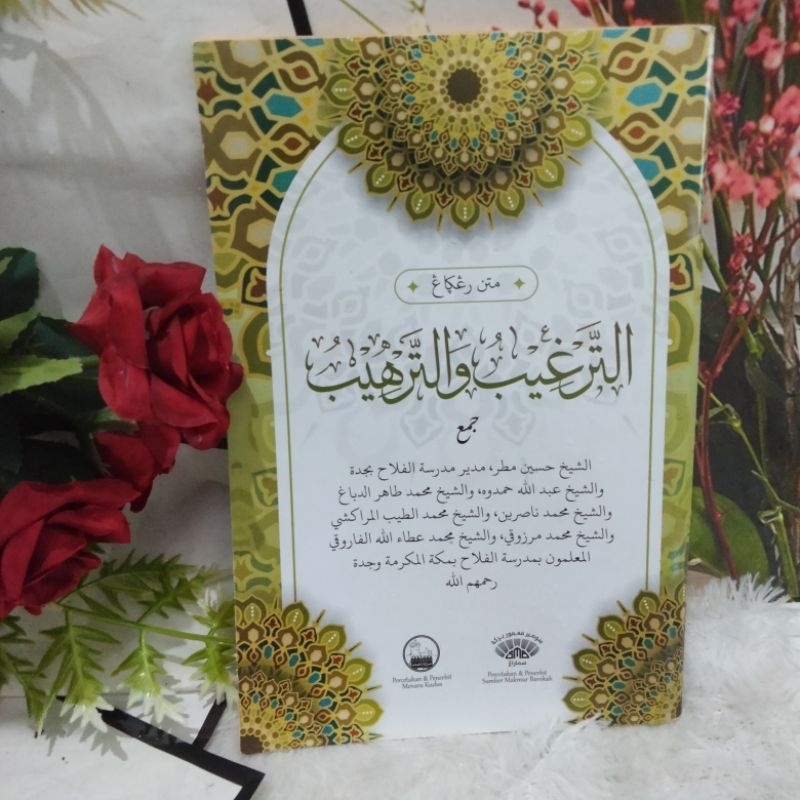 متن رڠكاڠ
التَّرْغِيْبُ وَالتَّرْهِيْبُ
جمع
الشيخ حسين مطر، مدير مدرسة الفلاح بجدة
والشيخ عبد الله حمدوه، والشيخ محمد طاهر الدباغ
والشيخ محمد ناصرين، والشيخ محمد الطيب المراكشي
والشيخ محمد مرزوقي، والشيخ محمد عطاء الله الفاروقي
المعلمون بمدرسة الفلاح بمكة المكرمة وجدة
رحمهم الله
سومبر معمور بركة
سماراڠ
Percetakan & Penerbit
Sumber Makmur Barokah
Percetakan & Penerbit
Menara Kudus